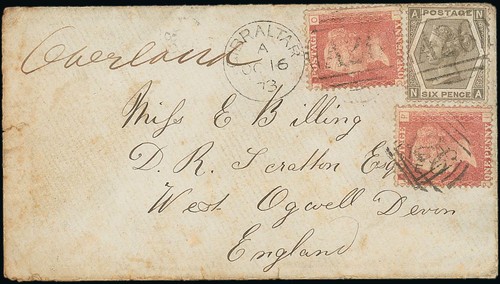 Overland
GIBRALTAR
A
OC 16
73
A26
POSTAGE
SIX PENCE
A N
N A
A26
ONE PENNY
Miss E Billing
D. R. Scratton Esq
West Ogwell Devon
England